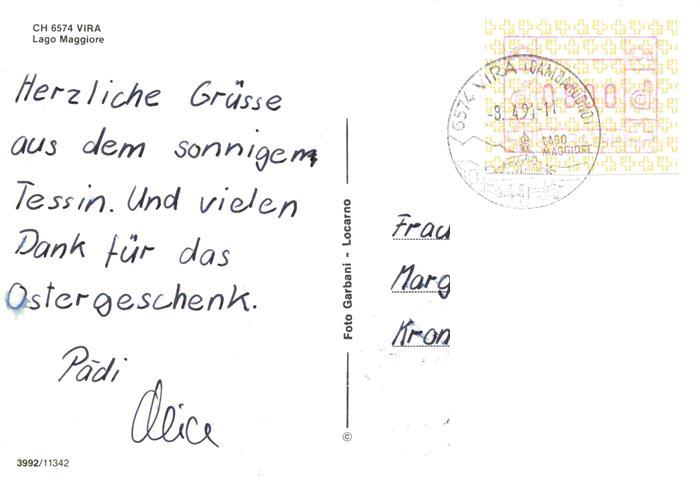 CH 6574 VIRA
Lago Maggiore
Herzliche Grüsse
aus dem sonnigem
Tessin. Und vielen
Dank für das
Ostergeschenk.
Pädi
Alice
3992/11342
Foto Garbani - Locarno
©
6574 VIRA (GAMBAROGNO)
LAGO
MAGGIORE
Frau
Marg
Kron